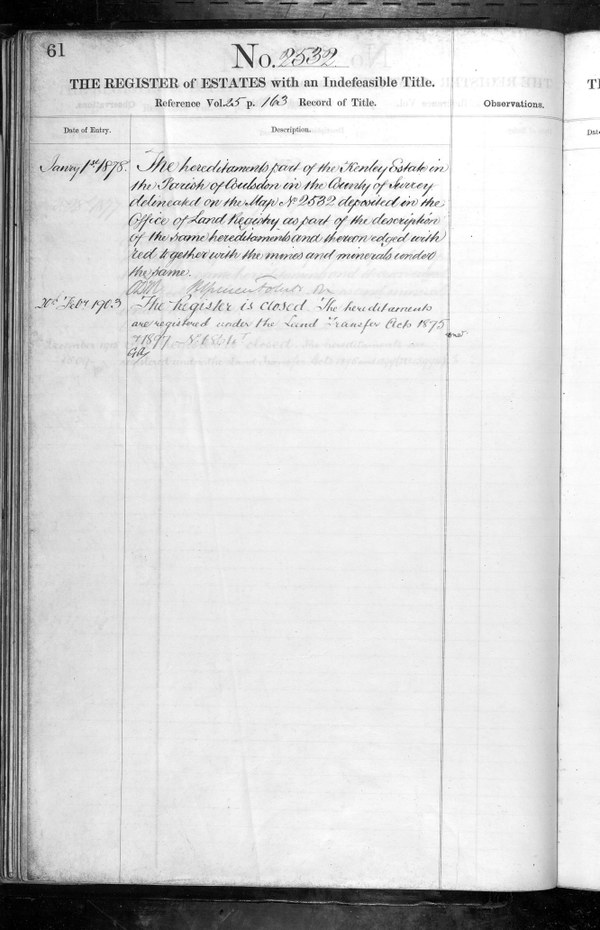 61
No. 2532
THE REGISTER of ESTATES with an Indefeasible Title.
Reference Vol. 25 p. 163 Record of Title.
Observations.
Date of Entry.
Description.
Janry 1st 1878.
The hereditaments part of the Kenley Estate in
the Parish of Coulsdon in the County of Surrey
delineated on the Map No 2532 deposited in the
Office of Land Registry as part of the description
of the same hereditaments and thereon edged with
red together with the mines and minerals under
the same.
Feby 1903
The Register is closed The hereditaments
are registered under the Land Transfer Acts 1875
& 1897